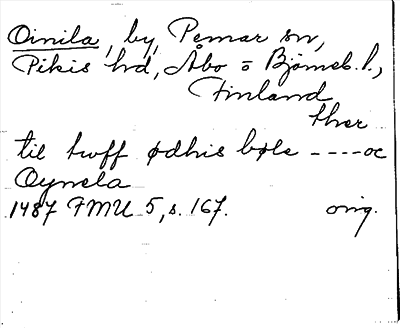 Oinila, by, Pemar sn,
Pikis hd, Åbo o Björneb. l.,
Finland
ther
til twff ødhis bøle ----oc
Oynela
1487 FMU 5, s. 167. orig.